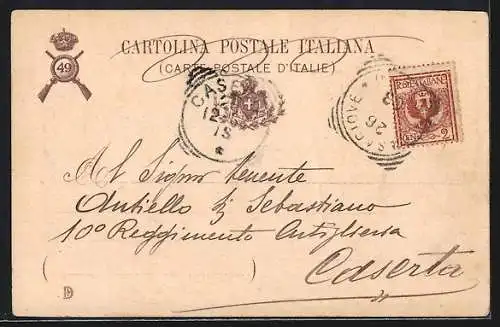 49
CARTOLINA POSTALE ITALIANA
(CARTE POSTALE D'ITALIE)
CASE
12
15
26
POSTE ITALIANE
2
Al Signor Tenente
Antiello di Sebastiano
10º Reggimento Artiglieria
Caserta
D